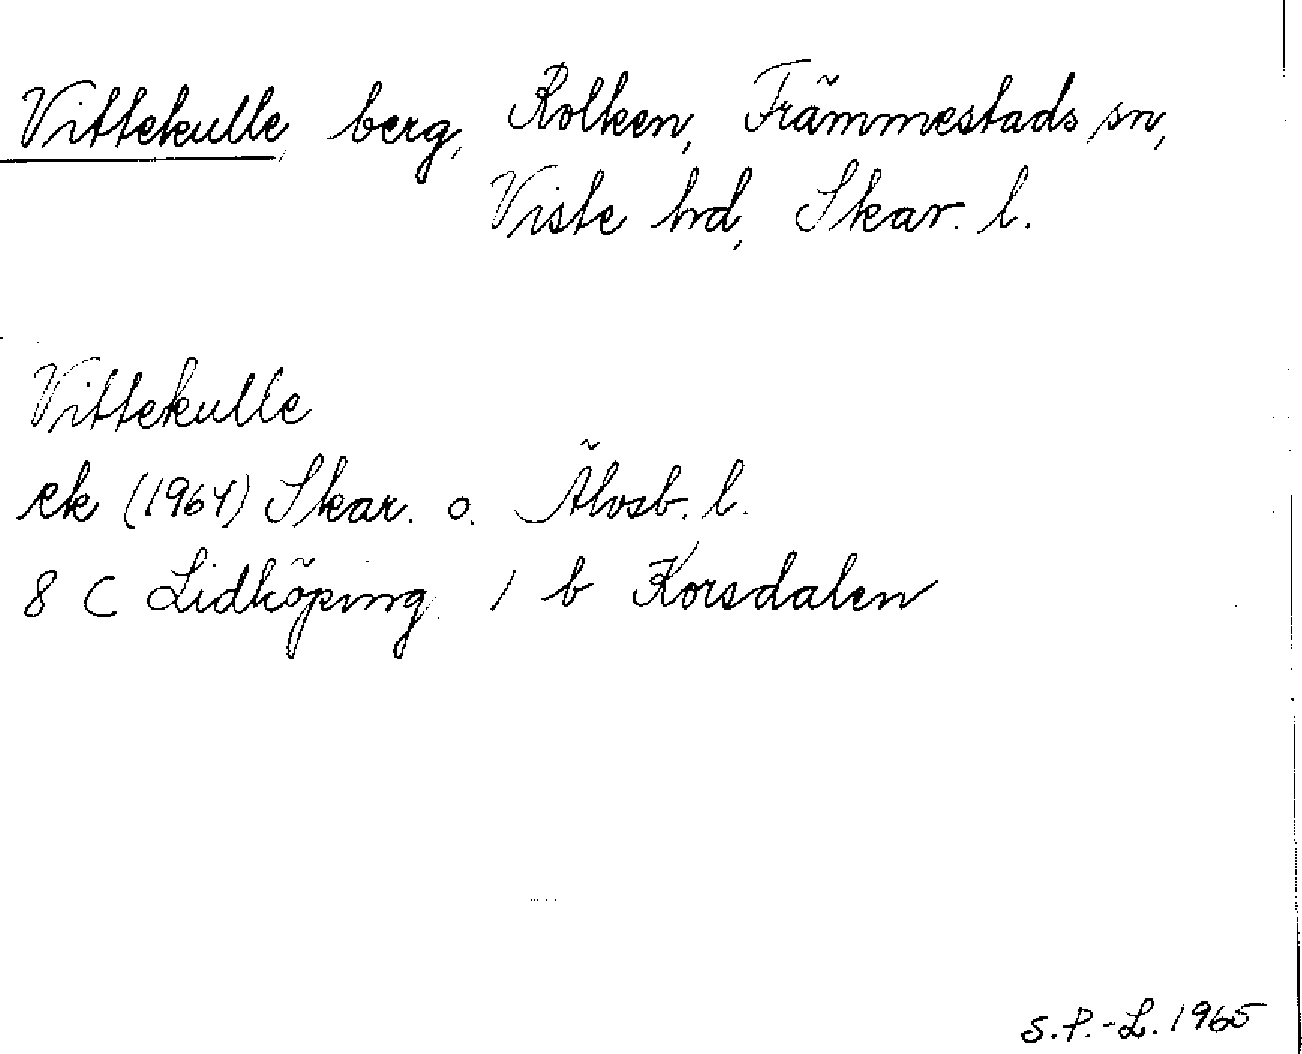 Vittekulle berg, Rolken, Främmestads sn,
Viste hd, Skar. l.
Vittekulle
ek (1964) Skar. o. Älvsb. l.
8 C Lidköping 1 b Korsdalen
S.P.-L. 1965